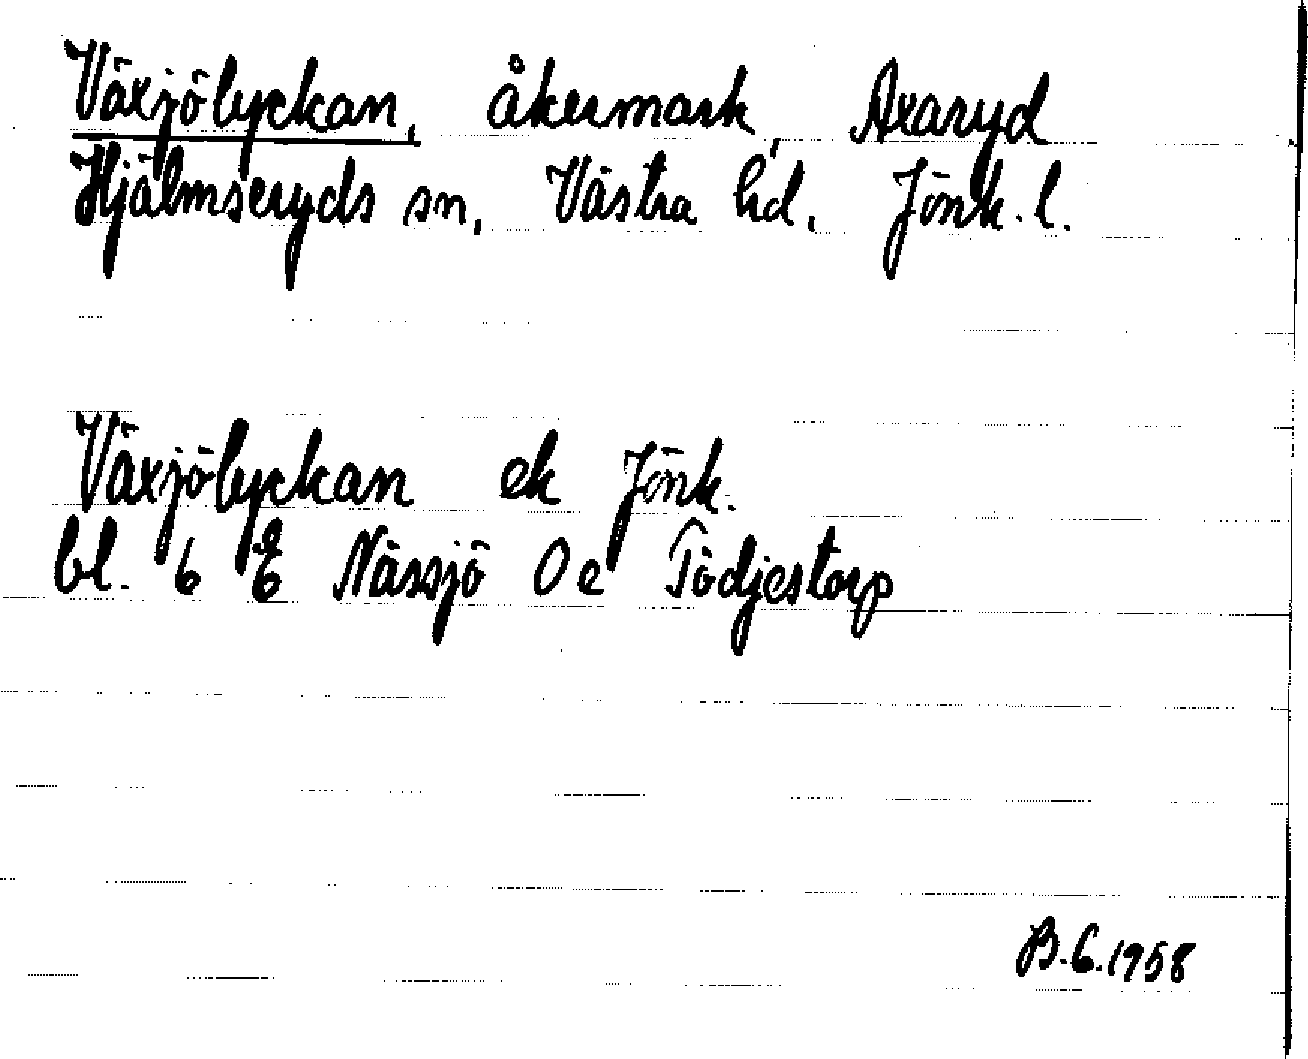 Växjölyckan, åkermark, Axaryd
Hjälmseryds sn, Västra hd, Jönk. l.
Växjölyckan ek Jönk.
bl. 6 E Nässjö Oe Tödjestorp
B.G.1958